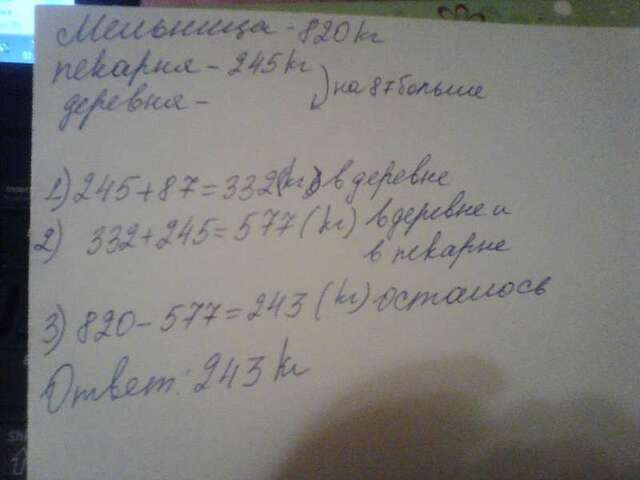 Мельница - 820 kg
пекарня - 245 kg
деревня -
на 87 больше
1) 245 + 87 = 332 (kg) в деревне
2) 332 + 245 = 577 (kg) в деревне и
в пекарне
3) 820 - 577 = 243 (kg) осталось
Ответ: 243 kg